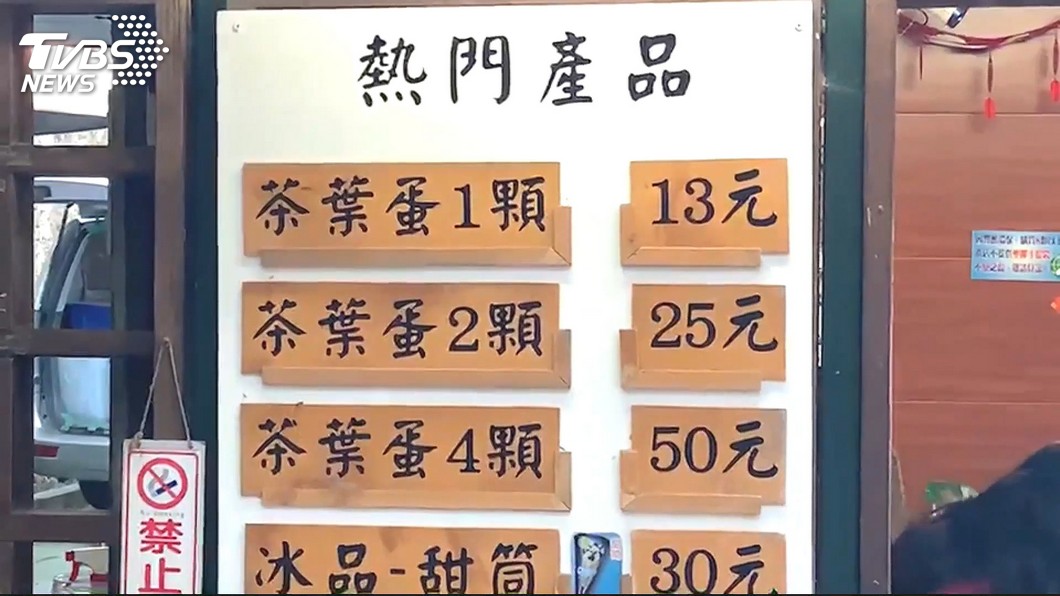 TVBS
NEWS
熱門產品
茶葉蛋1顆 13元
茶葉蛋2顆 25元
茶葉蛋4顆 50元
冰品-甜筒 30元
No smoking
禁止